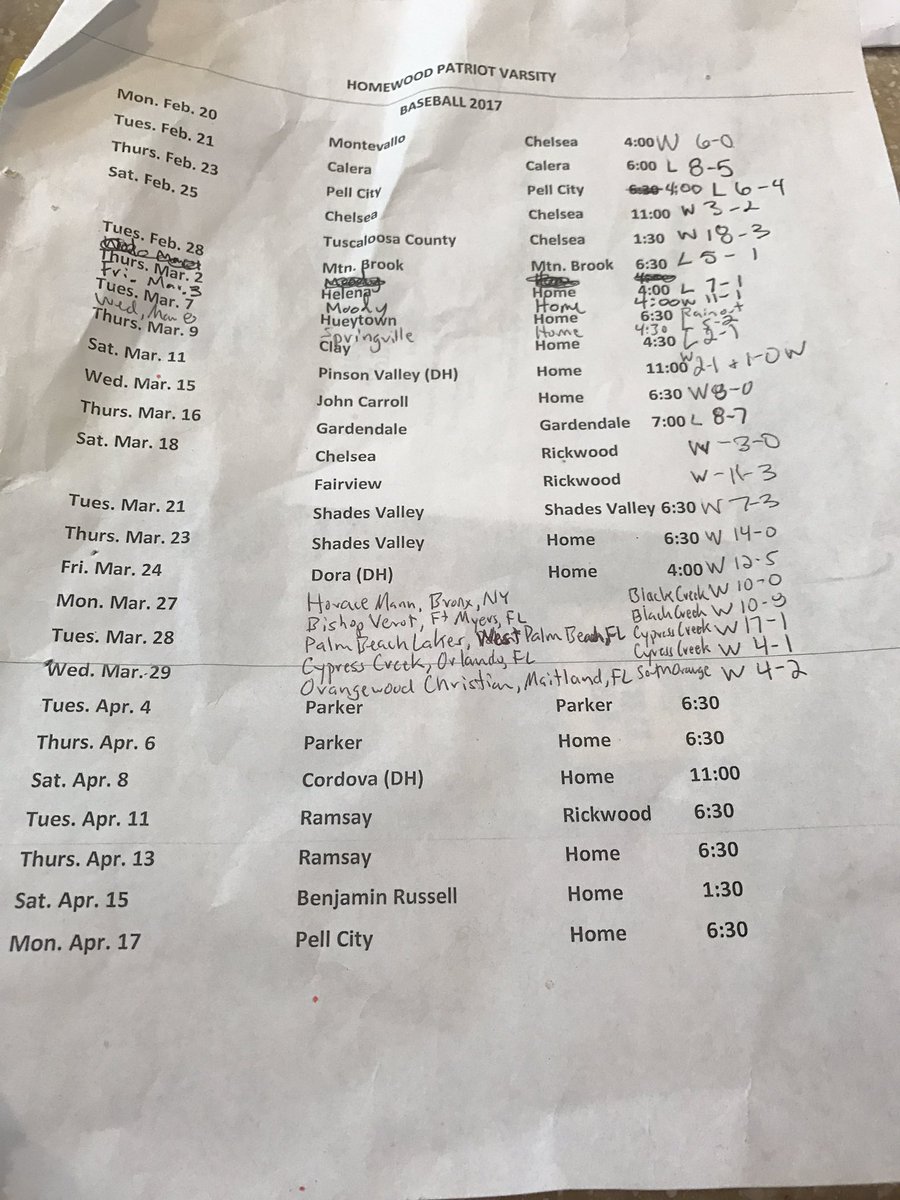 HOMEWOOD PATRIOT VARSITY
BASEBALL 2017
Mon. Feb. 20 Montevallo Chelsea 4:00 W 6-0
Tues. Feb. 21 Calera Calera 6:00 L 8-5
Thurs. Feb. 23 Pell City Pell City 6:30 4:00 L 6-4
Sat. Feb. 25 Chelsea Chelsea 11:00 W 3-2
Tuscaloosa County Chelsea 1:30 W 18-3
Tues. Feb. 28 Mtn. Brook Mtn. Brook 6:30 L 5-1
Thurs. Mar. 2 Helena Home 4:00 L 7-1
Fri. Mar. 3 Moody Home 4:00 W 11-1
Tues. Mar. 7 Hueytown Home 6:30 Rainout
Wed, Mar 8 Springville Home 4:30 L
Thurs. Mar. 9 Clay Home 4:30 L
Sat. Mar. 11 Pinson Valley (DH) Home 11:00 W 2-1 + 1-0 W
Wed. Mar. 15 John Carroll Home 6:30 W 8-0
Thurs. Mar. 16 Gardendale Gardendale 7:00 L 8-7
Sat. Mar. 18 Chelsea Rickwood W-3-0
Fairview Rickwood W-11-3
Tues. Mar. 21 Shades Valley Shades Valley 6:30 W 7-3
Thurs. Mar. 23 Shades Valley Home 6:30 W 14-0
Fri. Mar. 24 Dora (DH) Home 4:00 W 12-5
Mon. Mar. 27 Horace Mann, Bronx, NY Black Creek W 10-0
Bishop Verot, Ft Myers, FL Black Creek W 10-9
Tues. Mar. 28 Palm Beach Lakes, West Palm Beach, FL Cypress Creek W 17-1
Cypress Creek, Orlando, FL Cypress Creek W 4-1
Wed. Mar. 29 Orangewood Christian, Maitland, FL South Orange W 4-2
Tues. Apr. 4 Parker Parker 6:30
Thurs. Apr. 6 Parker Home 6:30
Sat. Apr. 8 Cordova (DH) Home 11:00
Tues. Apr. 11 Ramsay Rickwood 6:30
Thurs. Apr. 13 Ramsay Home 6:30
Sat. Apr. 15 Benjamin Russell Home 1:30
Mon. Apr. 17 Pell City Home 6:30